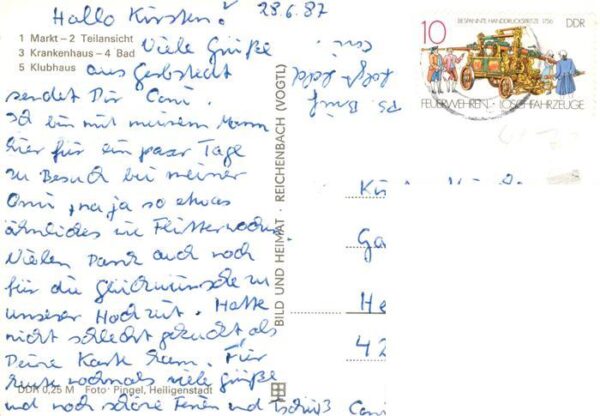 Hallo Kirsten! 28.6.87
1 Markt – 2 Teilansicht
3 Krankenhaus – 4 Bad
5 Klubhaus
Viele Grüße
aus Gerbstedt
sendet Dir Coni.
Ich bin mit meinem Mann
hier für ein paar Tage
zu Besuch bei meiner
Omi, na ja so etwas
ähnliches wie Flitterwochen
Vielen Dank auch noch
für die Glückwünsche zu
unserer Hochzeit. Hatte
nicht schlecht geguckt als
Deine Karte kam. Für
heute nochmals viele Grüße
und noch schöne Ferien und Tschüß Coni
DDR 0,25 M Foto: Pingel, Heiligenstadt
BILD UND HEIMAT · REICHENBACH (VOGTL)
PS. Brief
folgt
10
BESPANNTE HANDDRUCKSPRITZE 1756
DDR
FEUERWEHREN · LÖSCHFAHRZEUGE
Ga
He
42